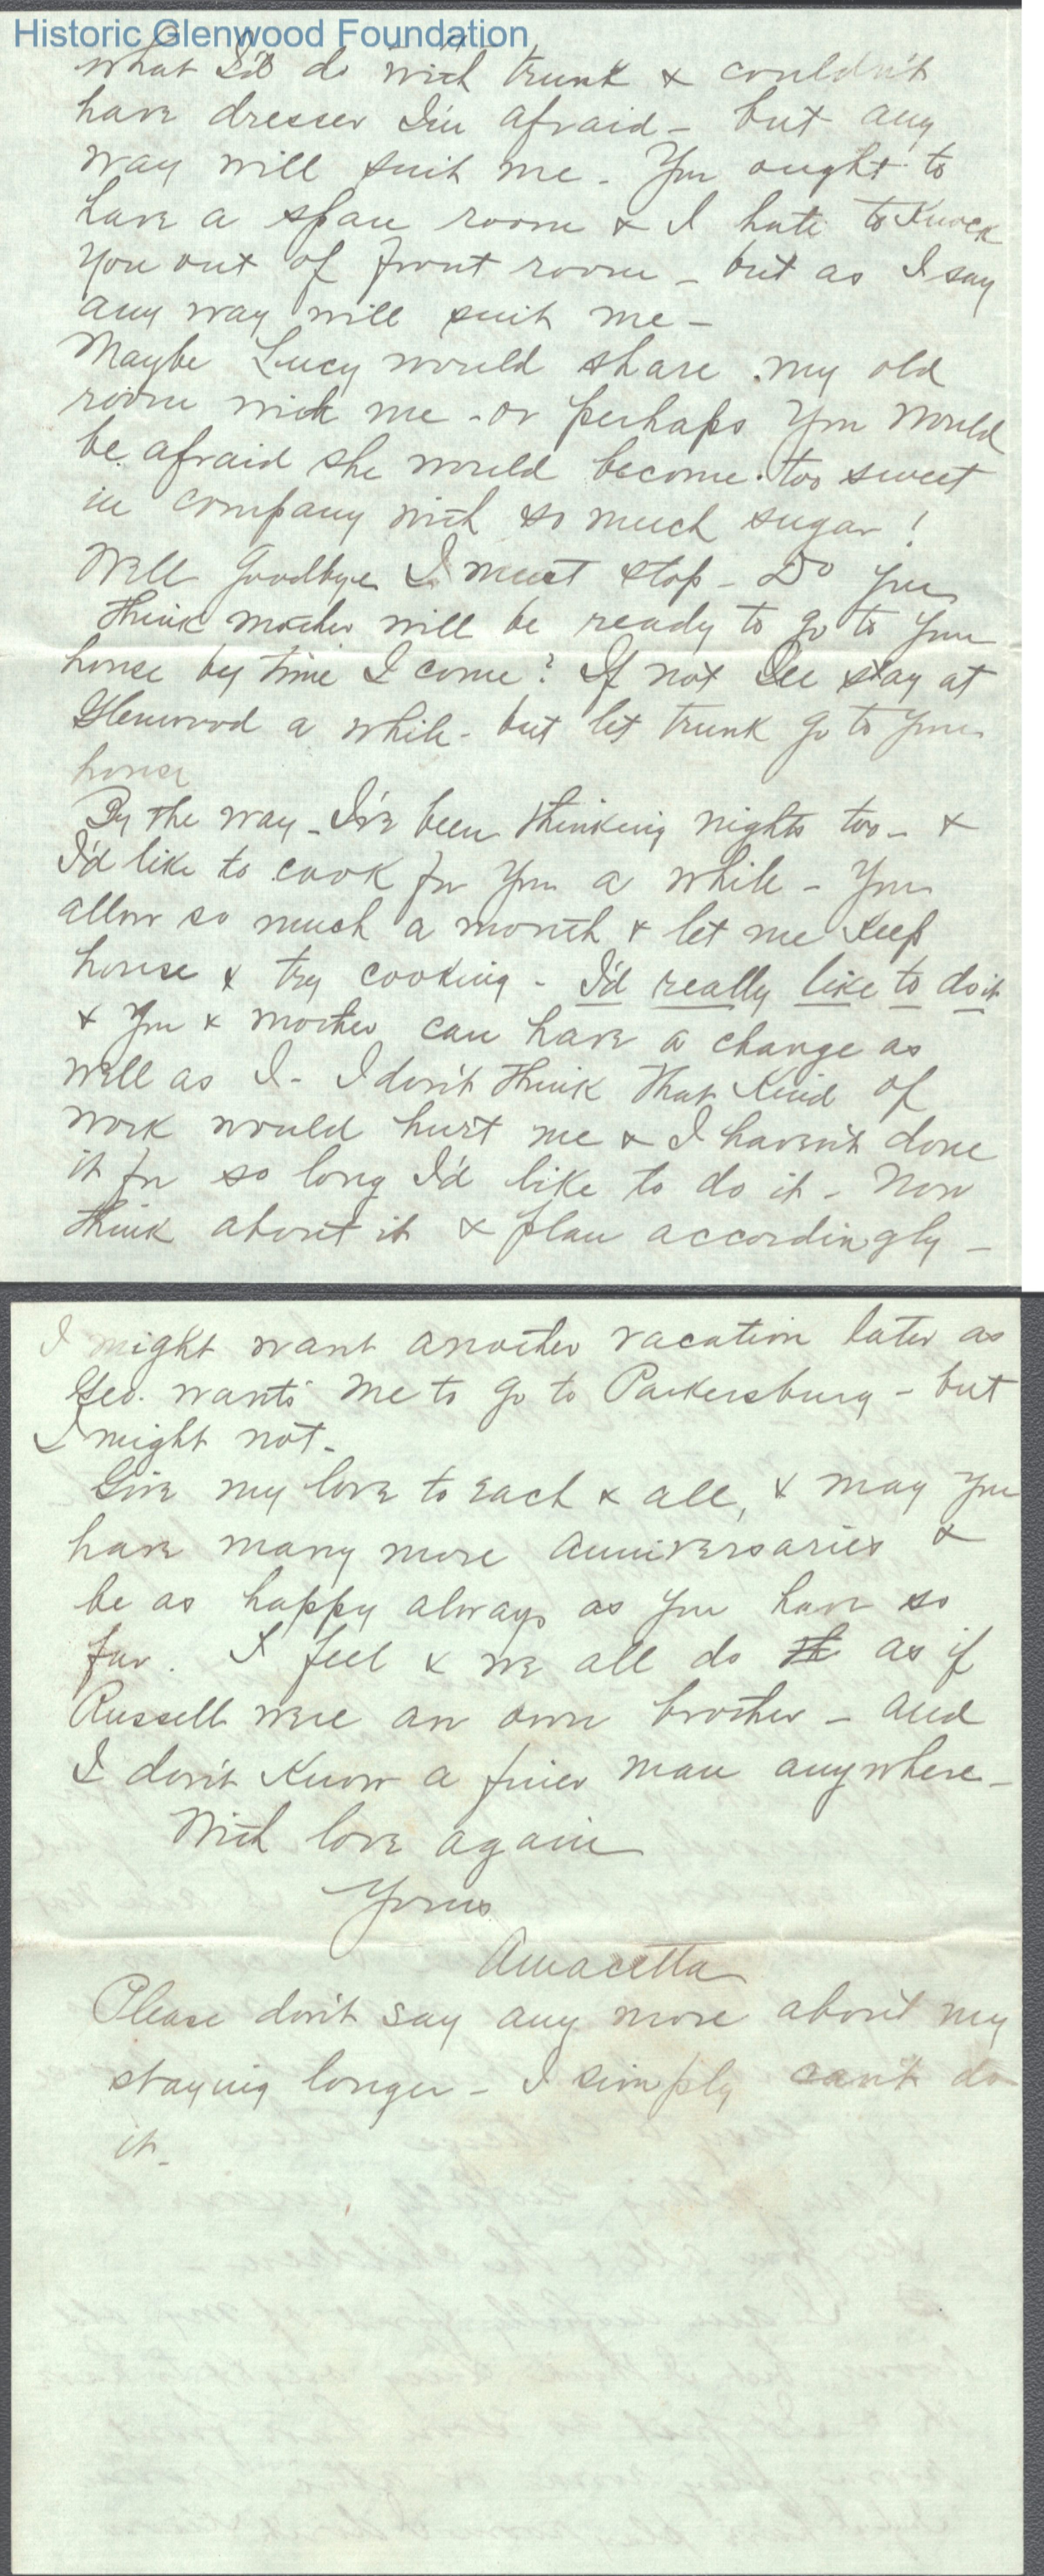 Historic Glenwood Foundation
what I'd do with trunk & couldn't
have dresser I'm afraid – but any
way will suit me. You ought to
have a spare room & I hate to knock
you out of front room – but as I say
any way will suit me –
Maybe Lucy would share my old
room with me – or perhaps you would
be afraid she would become too sweet
in company with so much sugar!
Well Goodbye I must stop – Do you
think mother will be ready to go to your
house by time I come? If not I'll stay at
Glenwood a while – but let trunk go to your
house
By the way – I've been thinking nights too – &
I'd like to cook for you a while – You
allow so much a month & let me keep
house & try cooking – I'd really like to do it
& you & mother can have a change as
well as I – I don't think that kind of
work would hurt me & I haven't done
it for so long I'd like to do it – Now
think about it & plan accordingly –
I might want another vacation later as
Geo. wants me to go to Parkersburg – but
I might not –
Give my love to each & all, & may you
have many more anniversaries &
be as happy always as you have so
far. I feel & we all do as if
Russell were an own brother – and
I don't know a finer man anywhere –
With love again
Yours
Amacetta
Please don't say any more about my
staying longer – I simply can't do
it –